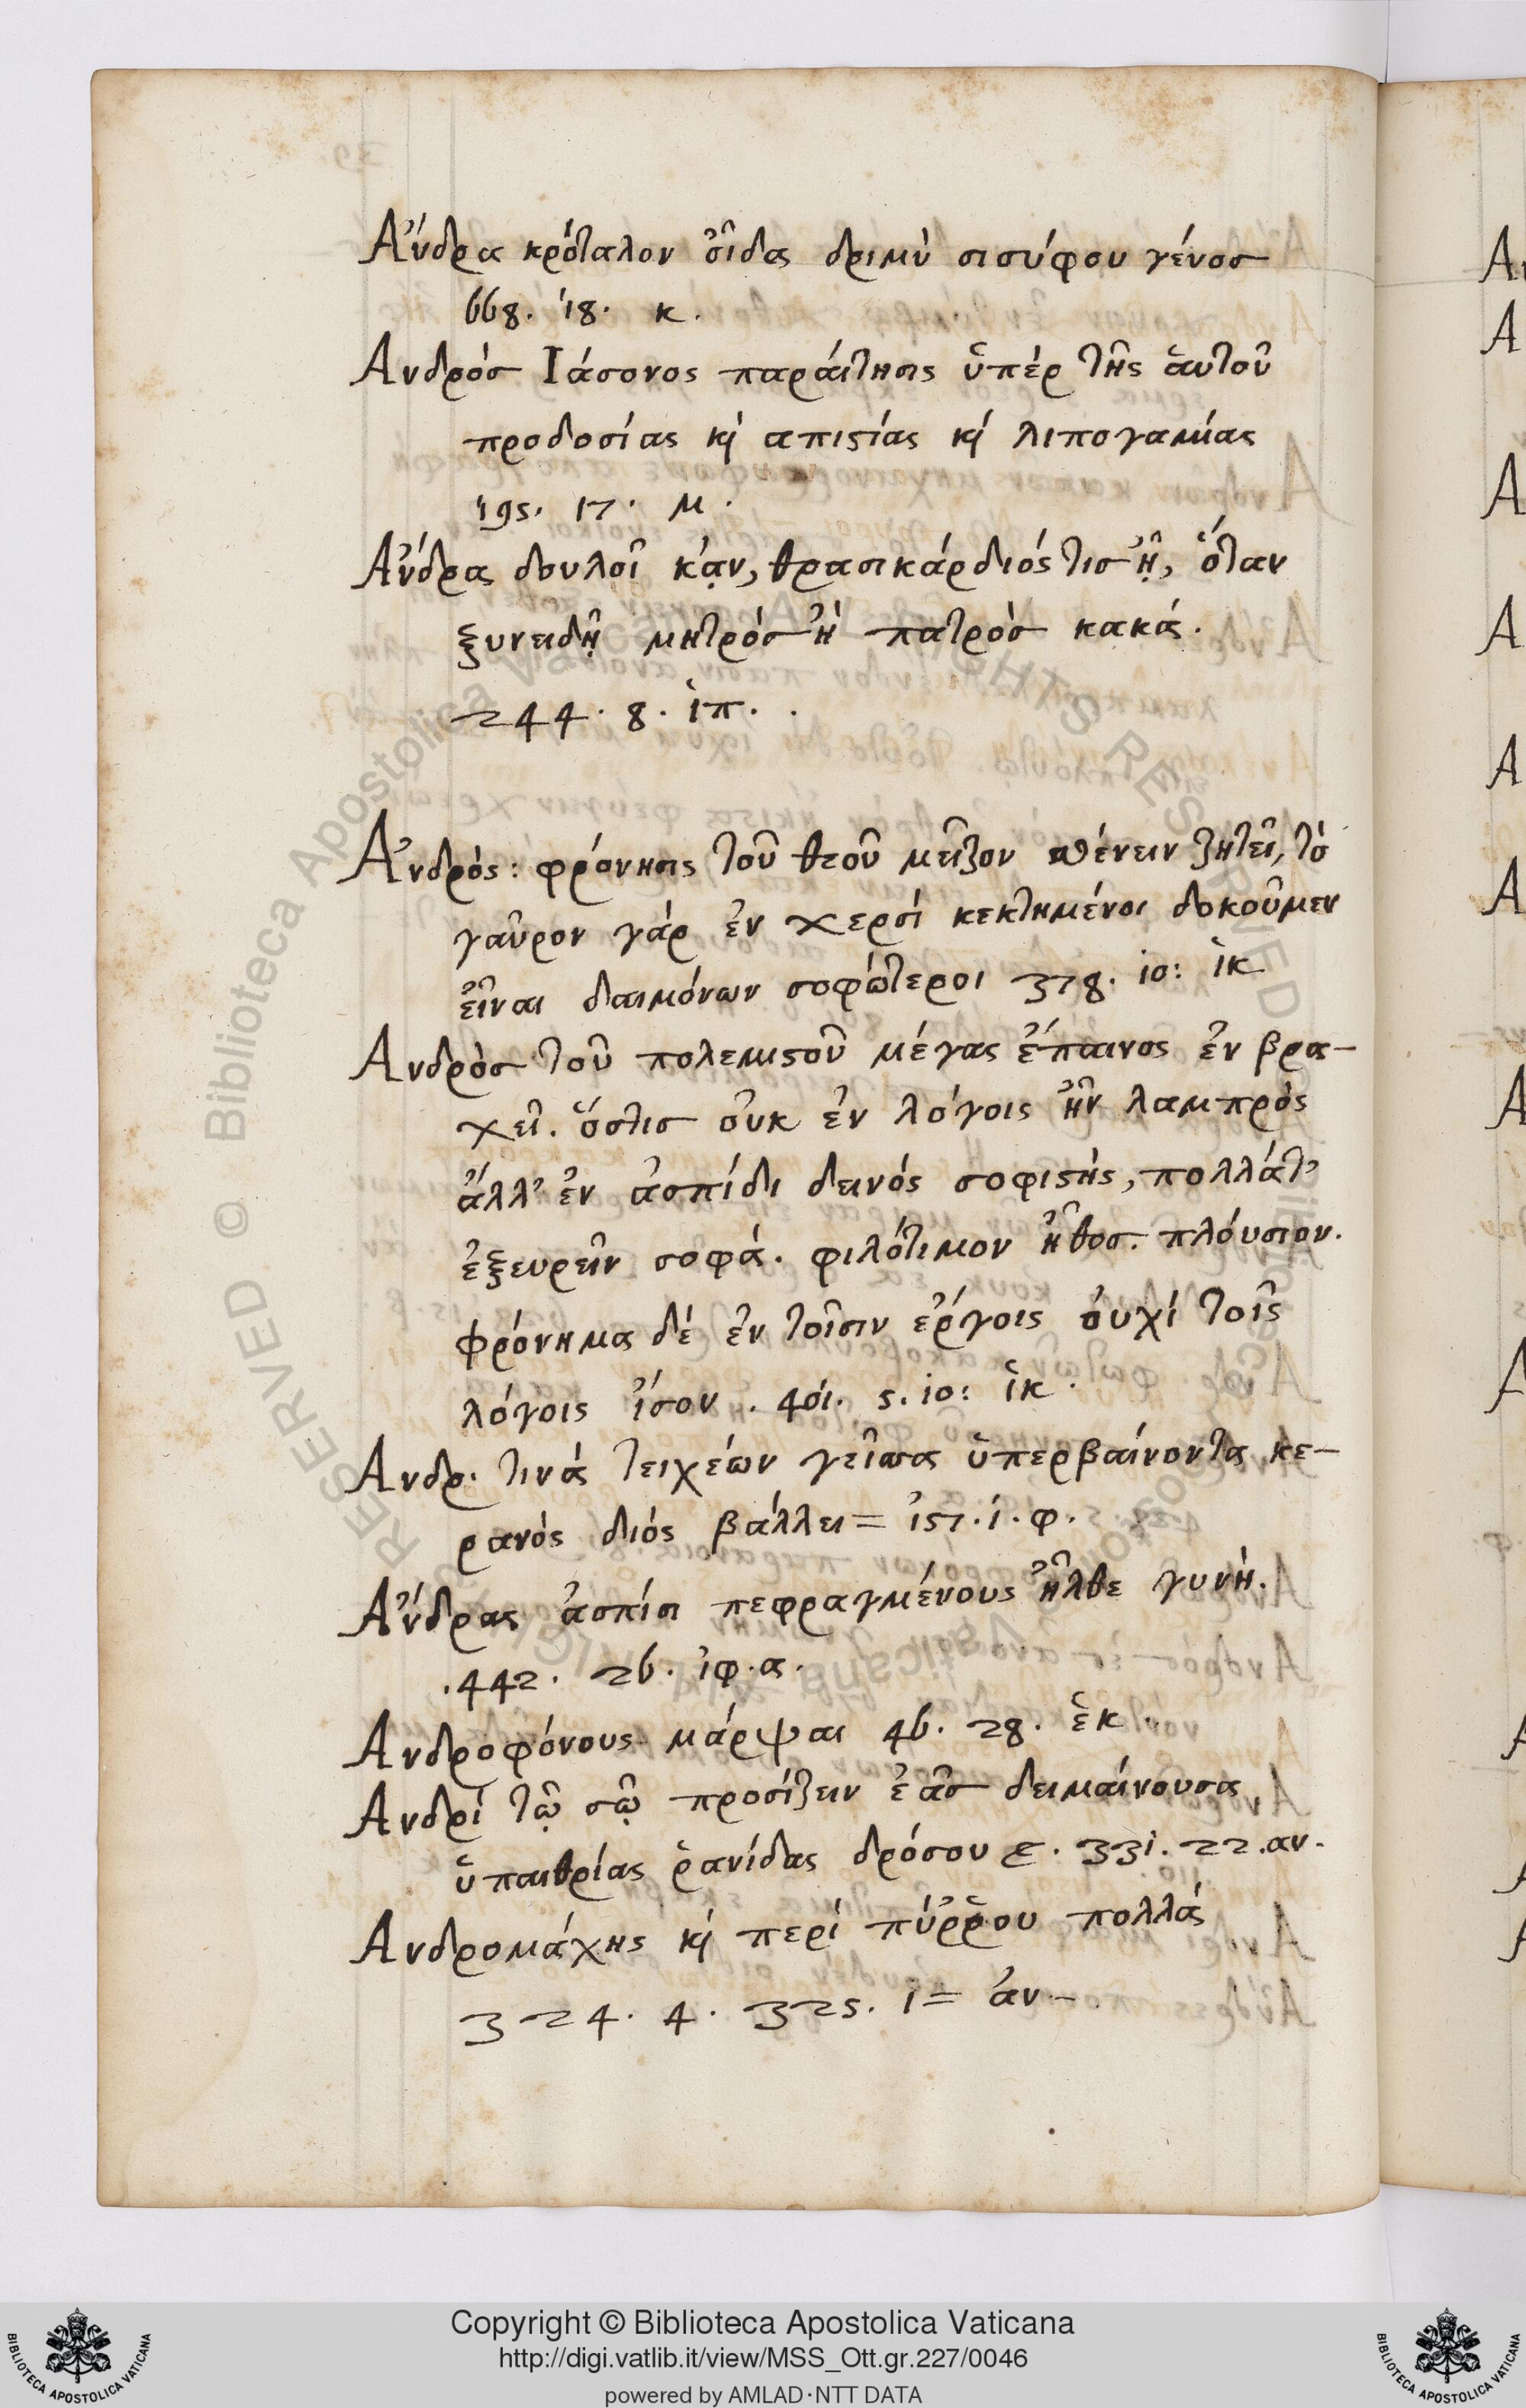 Ἄνδρα κρόταλον οἶδα δριμὺ σισύφου γένοσ
668. 18. κ.
Ανδρόσ Ιάσονος παράιτησις ὑπέρ τῆς ἁυτοῦ
προδοσίας κὶ απιςίας κὶ λιπογαμίας
195. 17. Μ.
Ἄνδρα δουλοῖ κᾀν, θρασικάρδιός τισ ᾖ, ὅταν
ξυνειδῇ μητρόσ ἢ πατρόσ κακά.
244. 8. ἱπ.
Ἀνδρός: φρόνησις τοῦ θεοῦ μεῖζον σθένειν ζητεῖ, τό
γαῦρον γάρ ἐν χερσί κεκτημένοι δοκοῦμεν
εἶναι δαιμόνων σοφώτεροι 378. 10: ἱκ
Ανδρόσ τοῦ πολεμιςοῦ μέγας ἔπαινος ἐν βρα-
χεῖ. ὅστισ οὐκ ἐν λόγοις ἦν λαμπρός
ἄλλ' ἐν ἀσπίδι δεινός σοφιςής, πολλάτ'
ἐξευρεῖν σοφά. φιλότιμον ἦθοσ. πλόυσιον.
φρόνημα δέ ἐν τοῖσιν ἔργοις ὀυχί τοῖς
λόγοις ἴσον. 401. 5. 10: ἱκ.
Ανδρ. τινά τειχέων γεῖσα ὑπερβαίνοντα κε-
ρανός διός βάλλει = 157. 1. φ.
Ἄνδρας ἀσπίσι πεφραγμένους ἦλθε γυνή.
442. 26. ἰφ. α.
Ανδροφόνους μάρψαι 46. 28. ἑκ.
Ανδρί τῷ σῷ προσίζειν ἐᾶσ δειμαίνουσα
ὑπαιθρίας ῥανίδας δρόσου 331. 22. αν.
Ανδρομάχης κὶ περί πύῤῥου πολλά
324. 4. 325. 1 = ἀν-
Copyright © Biblioteca Apostolica Vaticana
http://digi.vatlib.it/view/MSS_Ott.gr.227/0046
powered by AMLAD·NTT DATA